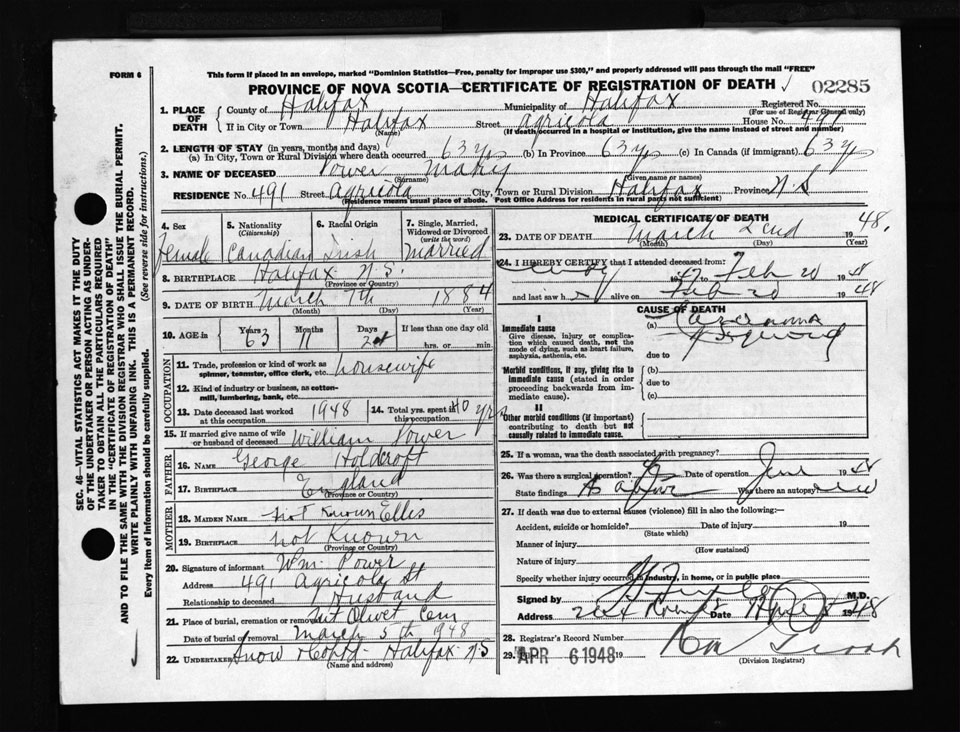 FORM 6
This form if placed in an envelope, marked "Dominion Statistics—Free, penalty for improper use $300," and properly addressed will pass through the mail "FREE"
PROVINCE OF NOVA SCOTIA—CERTIFICATE OF REGISTRATION OF DEATH 02285
SEC. 46—VITAL STATISTICS ACT MAKES IT THE DUTY
OF THE UNDERTAKER OR PERSON ACTING AS UNDER-
TAKER TO OBTAIN ALL THE PARTICULARS REQUIRED
IN THE "CERTIFICATE OF REGISTRATION OF DEATH"
AND TO FILE THE SAME WITH THE DIVISION REGISTRAR WHO SHALL ISSUE THE BURIAL PERMIT.
WRITE PLAINLY WITH UNFADING INK. THIS IS A PERMANENT RECORD.
Every item of information should be carefully supplied. (See reverse side for instructions.)
1. PLACE OF DEATH
County of Halifax Municipality of Halifax Registered No.
(For use of Registrar General only)
If in City or Town Halifax Street Agricola House No. 491
(Name) (If death occurred in a hospital or institution, give the name instead of street and number)
2. LENGTH OF STAY (in years, months and days)
(a) In City, Town or Rural Division where death occurred 63 y (b) In Province 63 y (c) In Canada (if immigrant) 63 y
3. NAME OF DECEASED Power Mary
(Surname) (Given name or names)
RESIDENCE No. 491 Street Agricola City, Town or Rural Division Halifax Province N.S
(Residence means usual place of abode. Post Office Address for residents in rural parts not sufficient)
4. Sex Female
5. Nationality (Citizenship) Canadian
6. Racial Origin Irish
7. Single, Married, Widowed or Divorced (write the word) Married
8. BIRTHPLACE Halifax N.S.
(Province or Country)
9. DATE OF BIRTH March 7th 1884
(Month) (Day) (Year)
10. AGE in Years 63 Months 11 Days If less than one day old
hrs. or min.
OCCUPATION
11. Trade, profession or kind of work as spinner, teamster, office clerk, etc. housewife
12. Kind of industry or business, as cotton-mill, lumbering, bank, etc.
13. Date deceased last worked at this occupation 1948 14. Total yrs. spent in this occupation 40 yrs
15. If married give name of wife or husband of deceased William Power
FATHER
16. NAME George Holdcroft
17. BIRTHPLACE England
(Province or Country)
MOTHER
18. MAIDEN NAME Not Known Ellis
19. BIRTHPLACE Not Known
(Province or Country)
20. Signature of informant Wm. Power
Address 491 Agricola St
Relationship to deceased Husband
21. Place of burial, cremation or removal Mt Olivet Cem
Date of burial or removal March 5th 1948
22. UNDERTAKER Snow Halifax N.S
(Name and address)
MEDICAL CERTIFICATE OF DEATH
23. DATE OF DEATH March 2nd 1948.
(Month) (Day) (Year)
24. I HEREBY CERTIFY that I attended deceased from:
1947 Feb 20 1948
and last saw h alive on Feb 20 1948
CAUSE OF DEATH
I
Immediate cause
Give disease, injury or complication which caused death, not the mode of dying, such as heart failure, asphyxia, asthenia, etc.
(a) Carcinoma
due to
Morbid conditions, if any, giving rise to immediate cause (stated in order proceeding backwards from immediate cause).
(b)
due to
(c)
II
Other morbid conditions (if important) contributing to death but not causally related to immediate cause.
25. If a woman, was the death associated with pregnancy?
26. Was there a surgical operation? Date of operation 19
State findings As above Was there an autopsy?
27. If death was due to external causes (violence) fill in also the following:
Accident, suicide or homicide? Date of injury 19
(State which)
Manner of injury
(How sustained)
Nature of injury
Specify whether injury occurred in industry, in home, or in public place
Signed by M.D.
Address Date 1948
28. Registrar's Record Number
29. APR 6 1948 19
(Division Registrar)